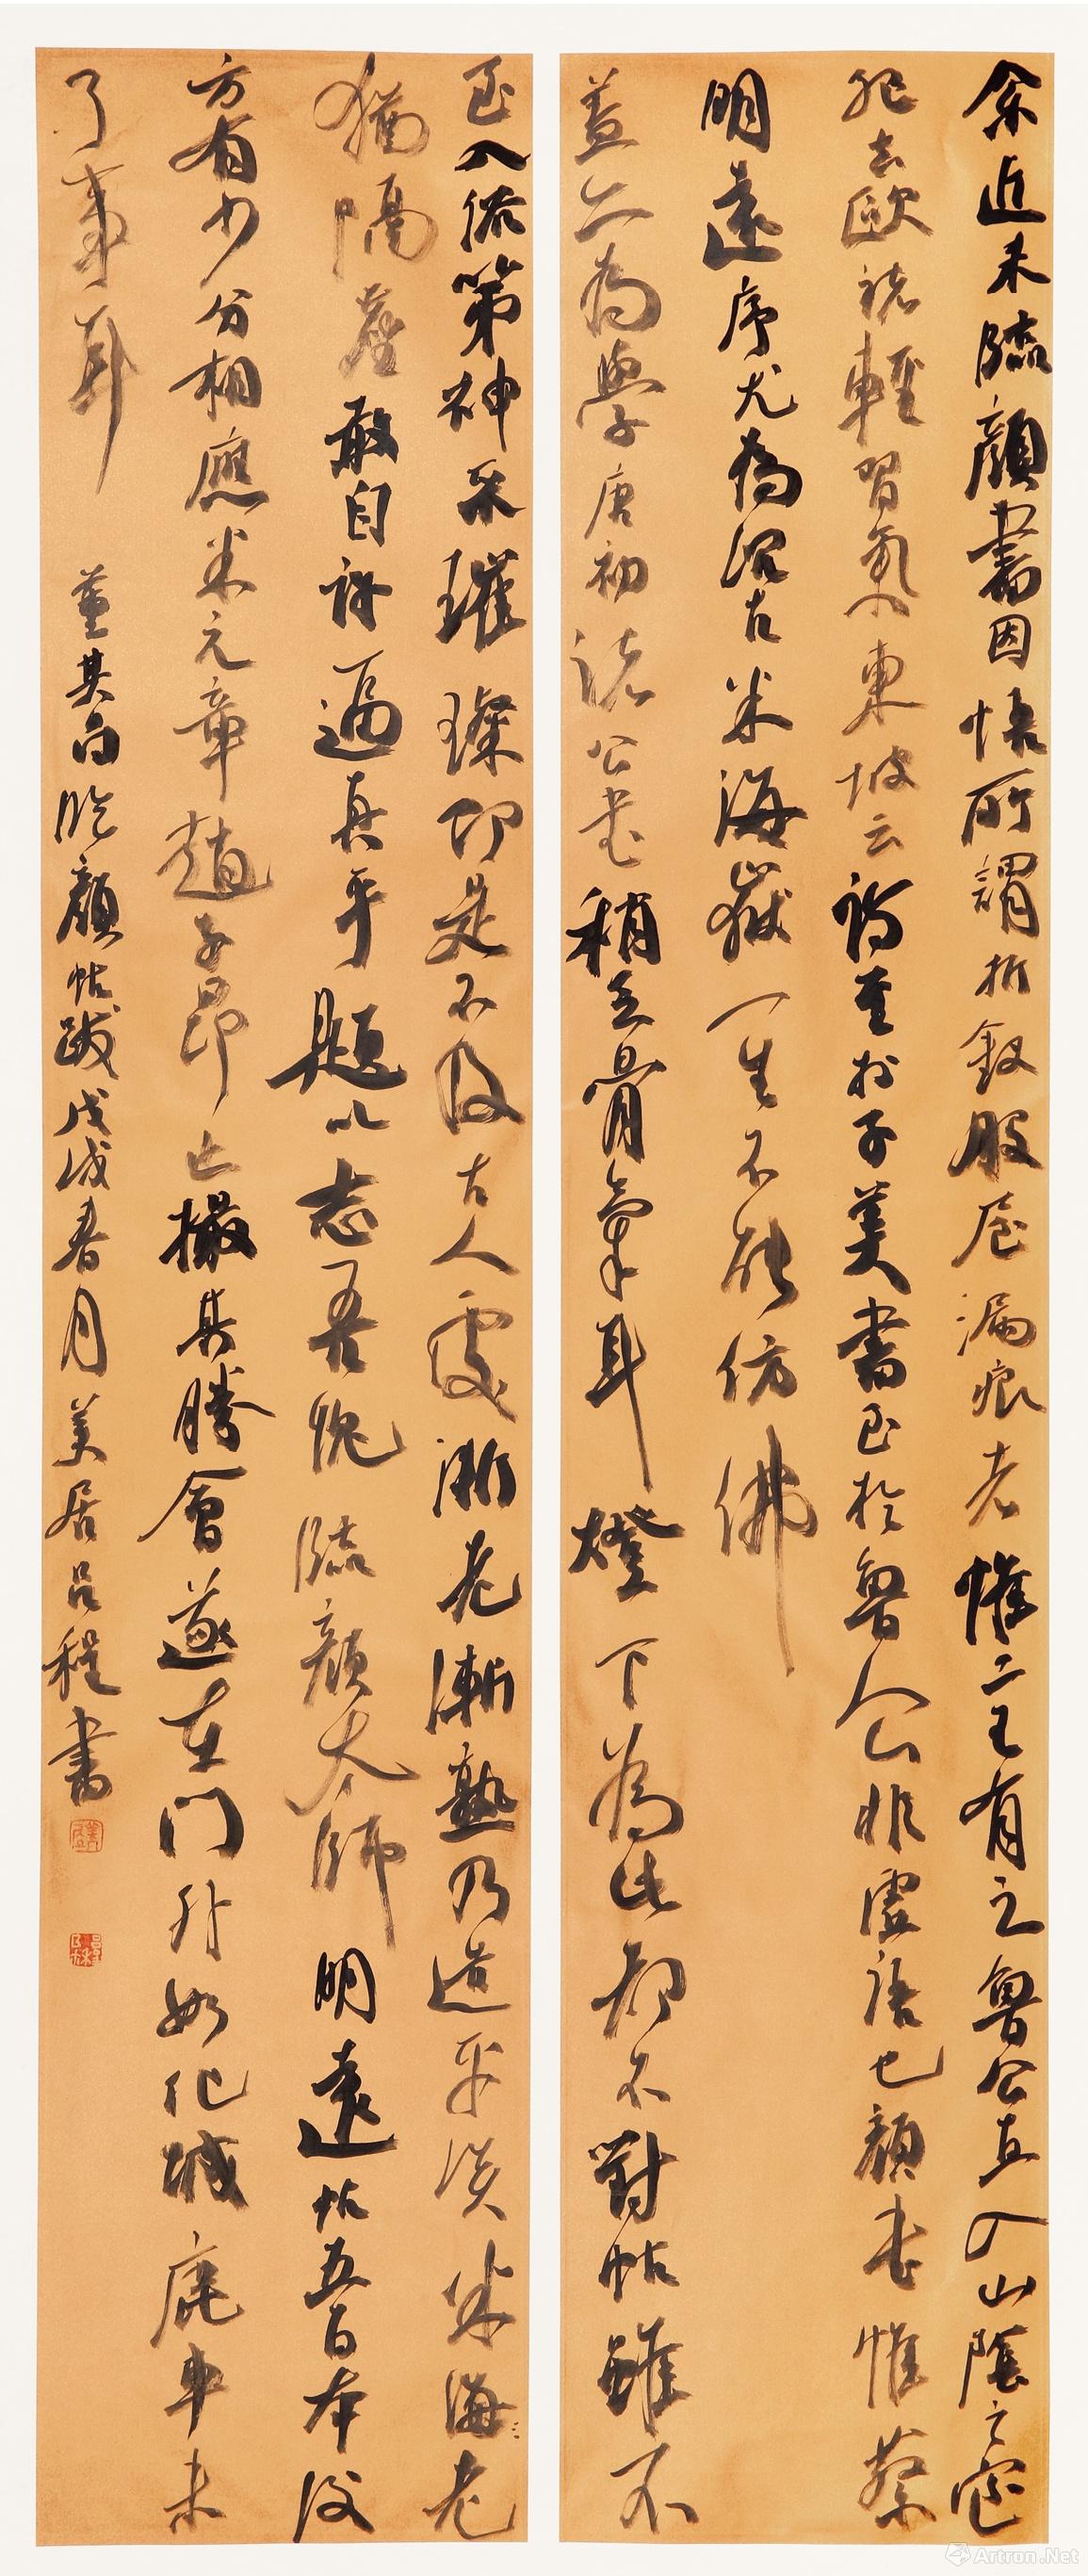 余近来临颜书因悟所謂折釵股屋漏痕者惟二王有之魯公直入山陰之室
絕去歐褚輕習氣東坡云詩至於子美書至於魯公非虛語也顏書惟蔡
明遠序尤為沉古米海嶽一生不能仿佛
蓋亦為學唐初諸公書稍乏骨氣耳燈下為此都不對帖雖不
至入俗第神采璀璨即是不及古人處漸老漸熟乃造平淡米海老
猶隔塵敢自許逼真乎題以志吾愧臨顏太師明遠帖五百本後
方有少分相應米元章趙子昂止撮其勝會遂在門外如化城鹿車未
了事耳
董其昌臨顏帖跋戊戌春月美居吕程書
Artron.Net